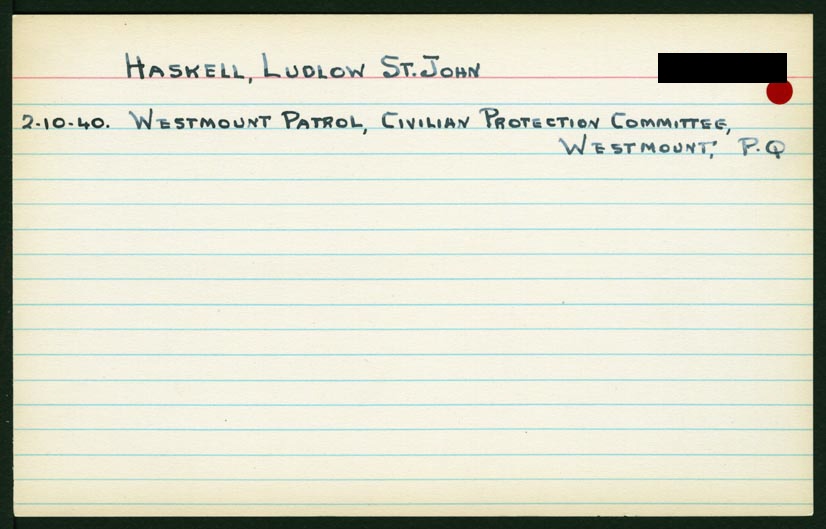 HASKELL, LUDLOW ST. JOHN
2-10-40. WESTMOUNT PATROL, CIVILIAN PROTECTION COMMITTEE,
WESTMOUNT, P.Q